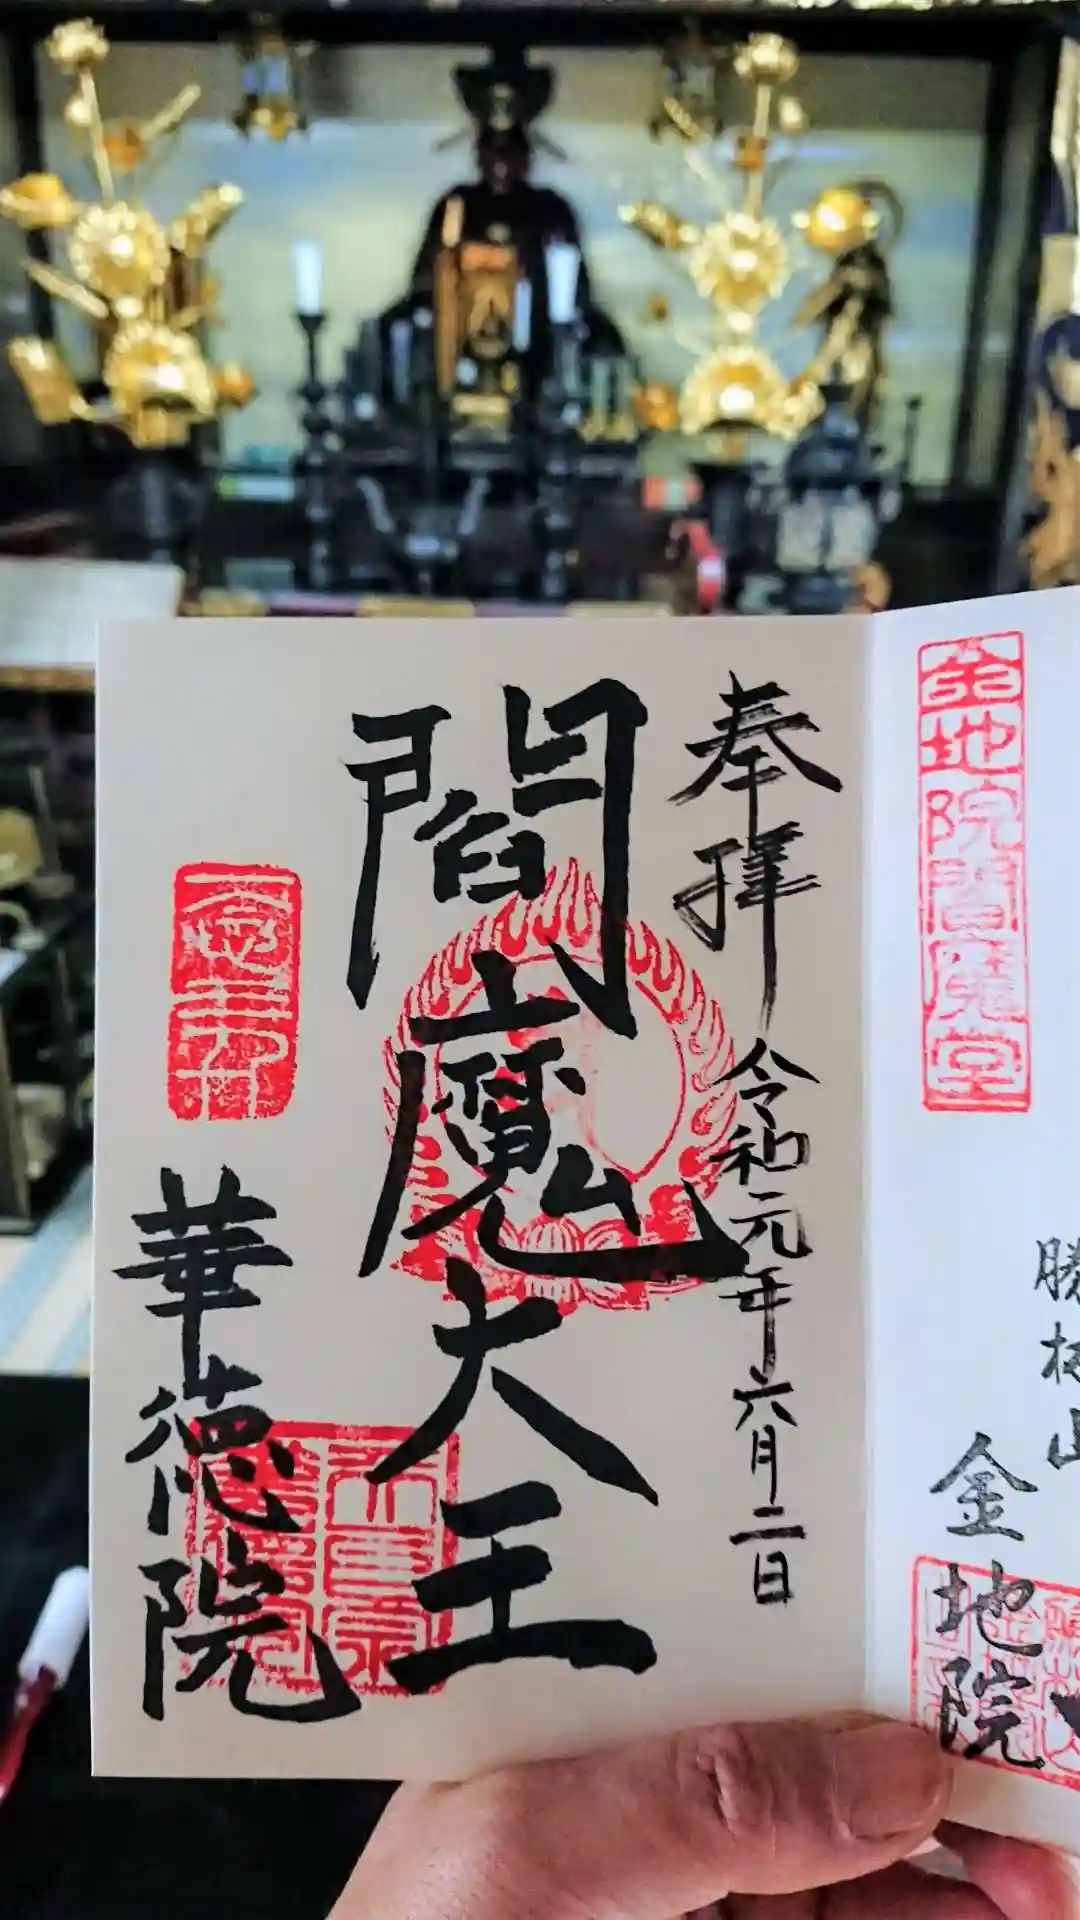 金地院閻魔堂
勝林山
金地院
奉拝
令和元年六月二日
閻魔大王
華徳院